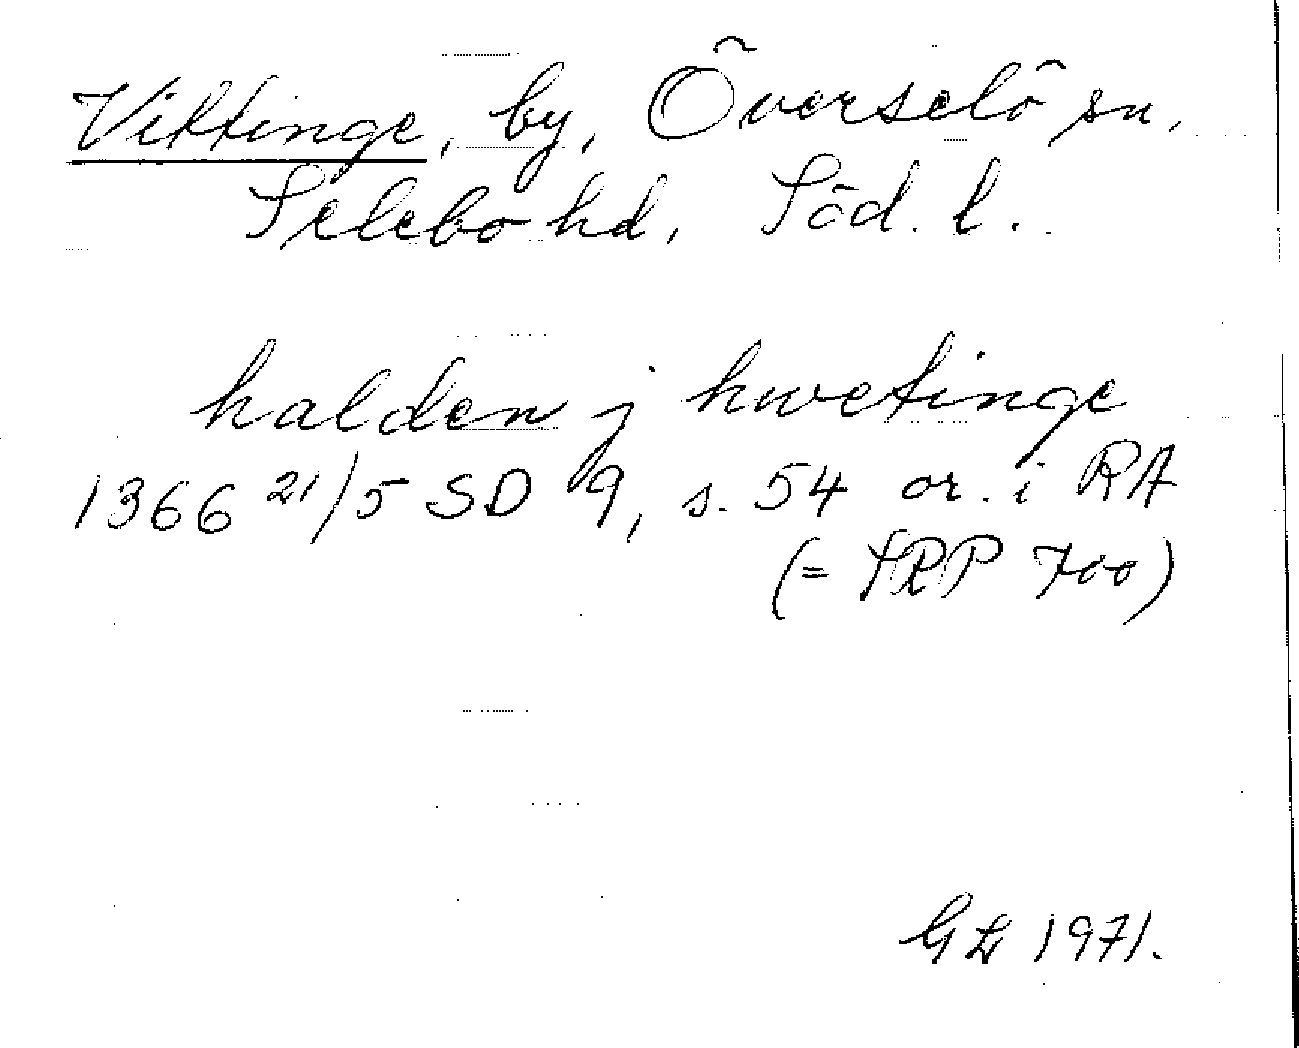 Vittinge, by, Överselö sn,
Selebo hd, Söd. l.
halden j hwetinge
1366 21/5 SD 9, s. 54 or. i RA
(= SRP 700)
GL 1971.